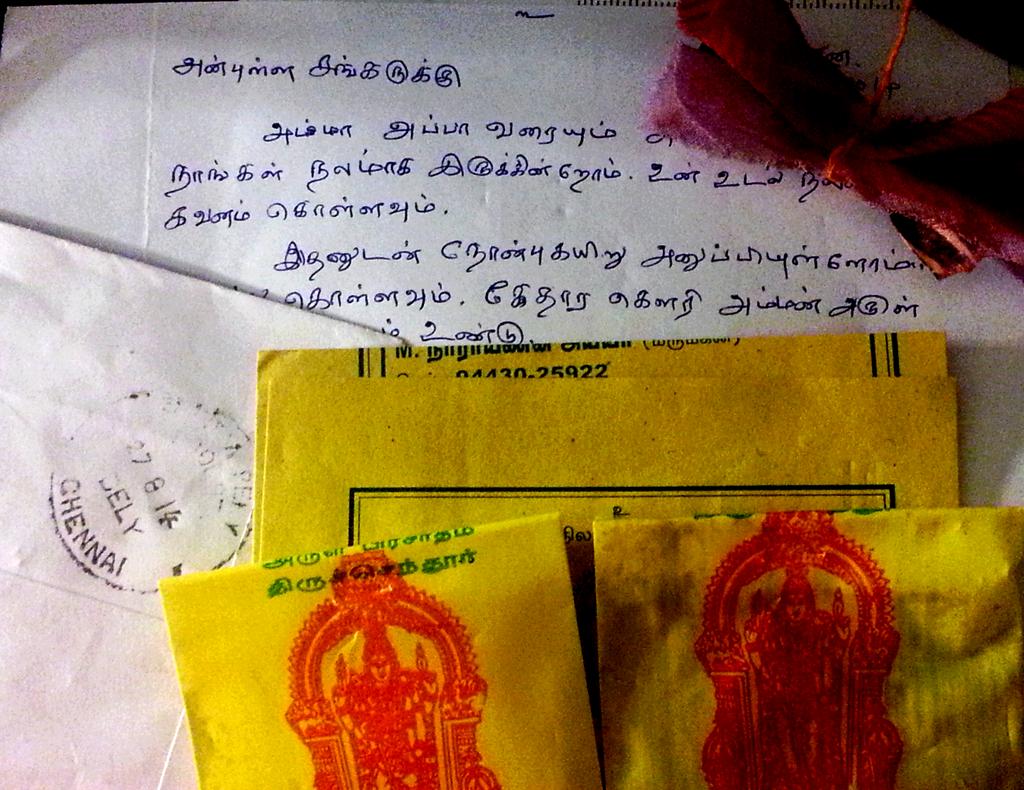 அன்புள்ள சிங்கருக்கு
அம்மா அப்பா வரையும்
நாங்கள் நலமாக இருக்கின்றோம். உன் உடல்
கவனம் கொள்ளவும்.
இதனுடன் நோன்புகயிறு அனுப்பியுள்ளோம்
கொள்ளவும். கேதார கௌரி அம்மன் அருள்
உண்டு.
M. நாராயணன் அய்யர் (மருமகன்)
94430-25922
உ
27 8 14
DELY
CHENNAI
அருள் பிரசாதம்
திருச்செந்தூர்